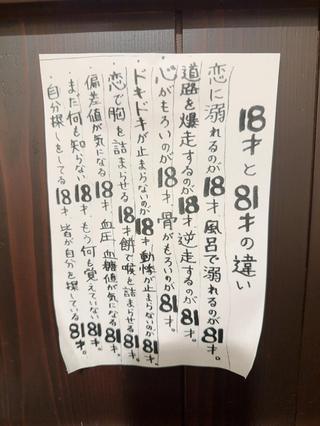 18才と81才の違い
恋に溺れるのが18才 風呂で溺れるのが81才。
道路を爆走するのが18才 逆走するのが81才。
心がもろいのが18才 骨がもろいのが81才。
ドキドキが止まらないのが18才 動悸が止まらないのが81才。
恋で胸を詰まらせる18才 餅で喉を詰まらせる81才。
偏差値が気になる18才 血圧血糖値が気になる81才。
まだ何も知らない18才 もう何も覚えていない81才。
自分探しをしてる18才 皆が自分を探している81才。